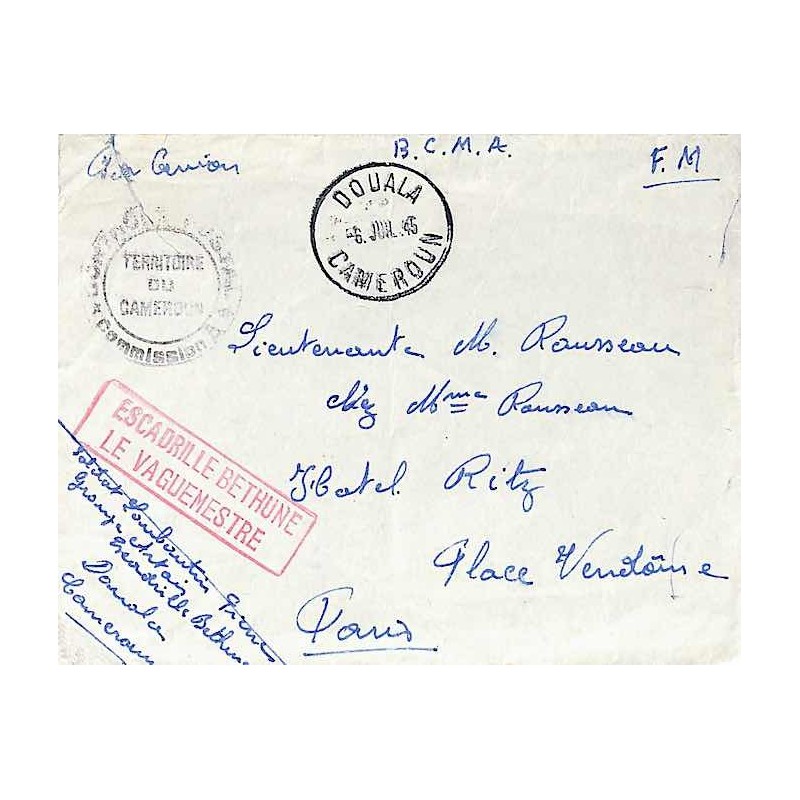 Par Avion
B.C.M.A.
F.M
DOUALA
-6. JUIL. 45
CAMEROUN
TERRITOIRE
DU
CAMEROUN
Commission
Lieutenante M. Rousseau
chez Mme Rousseau
Hotel Ritz
Place Vendôme
Paris
ESCADRILLE BETHUNE
LE VAGUEMESTRE
Soldat
Escadrille Bethune
Douala
Cameroun